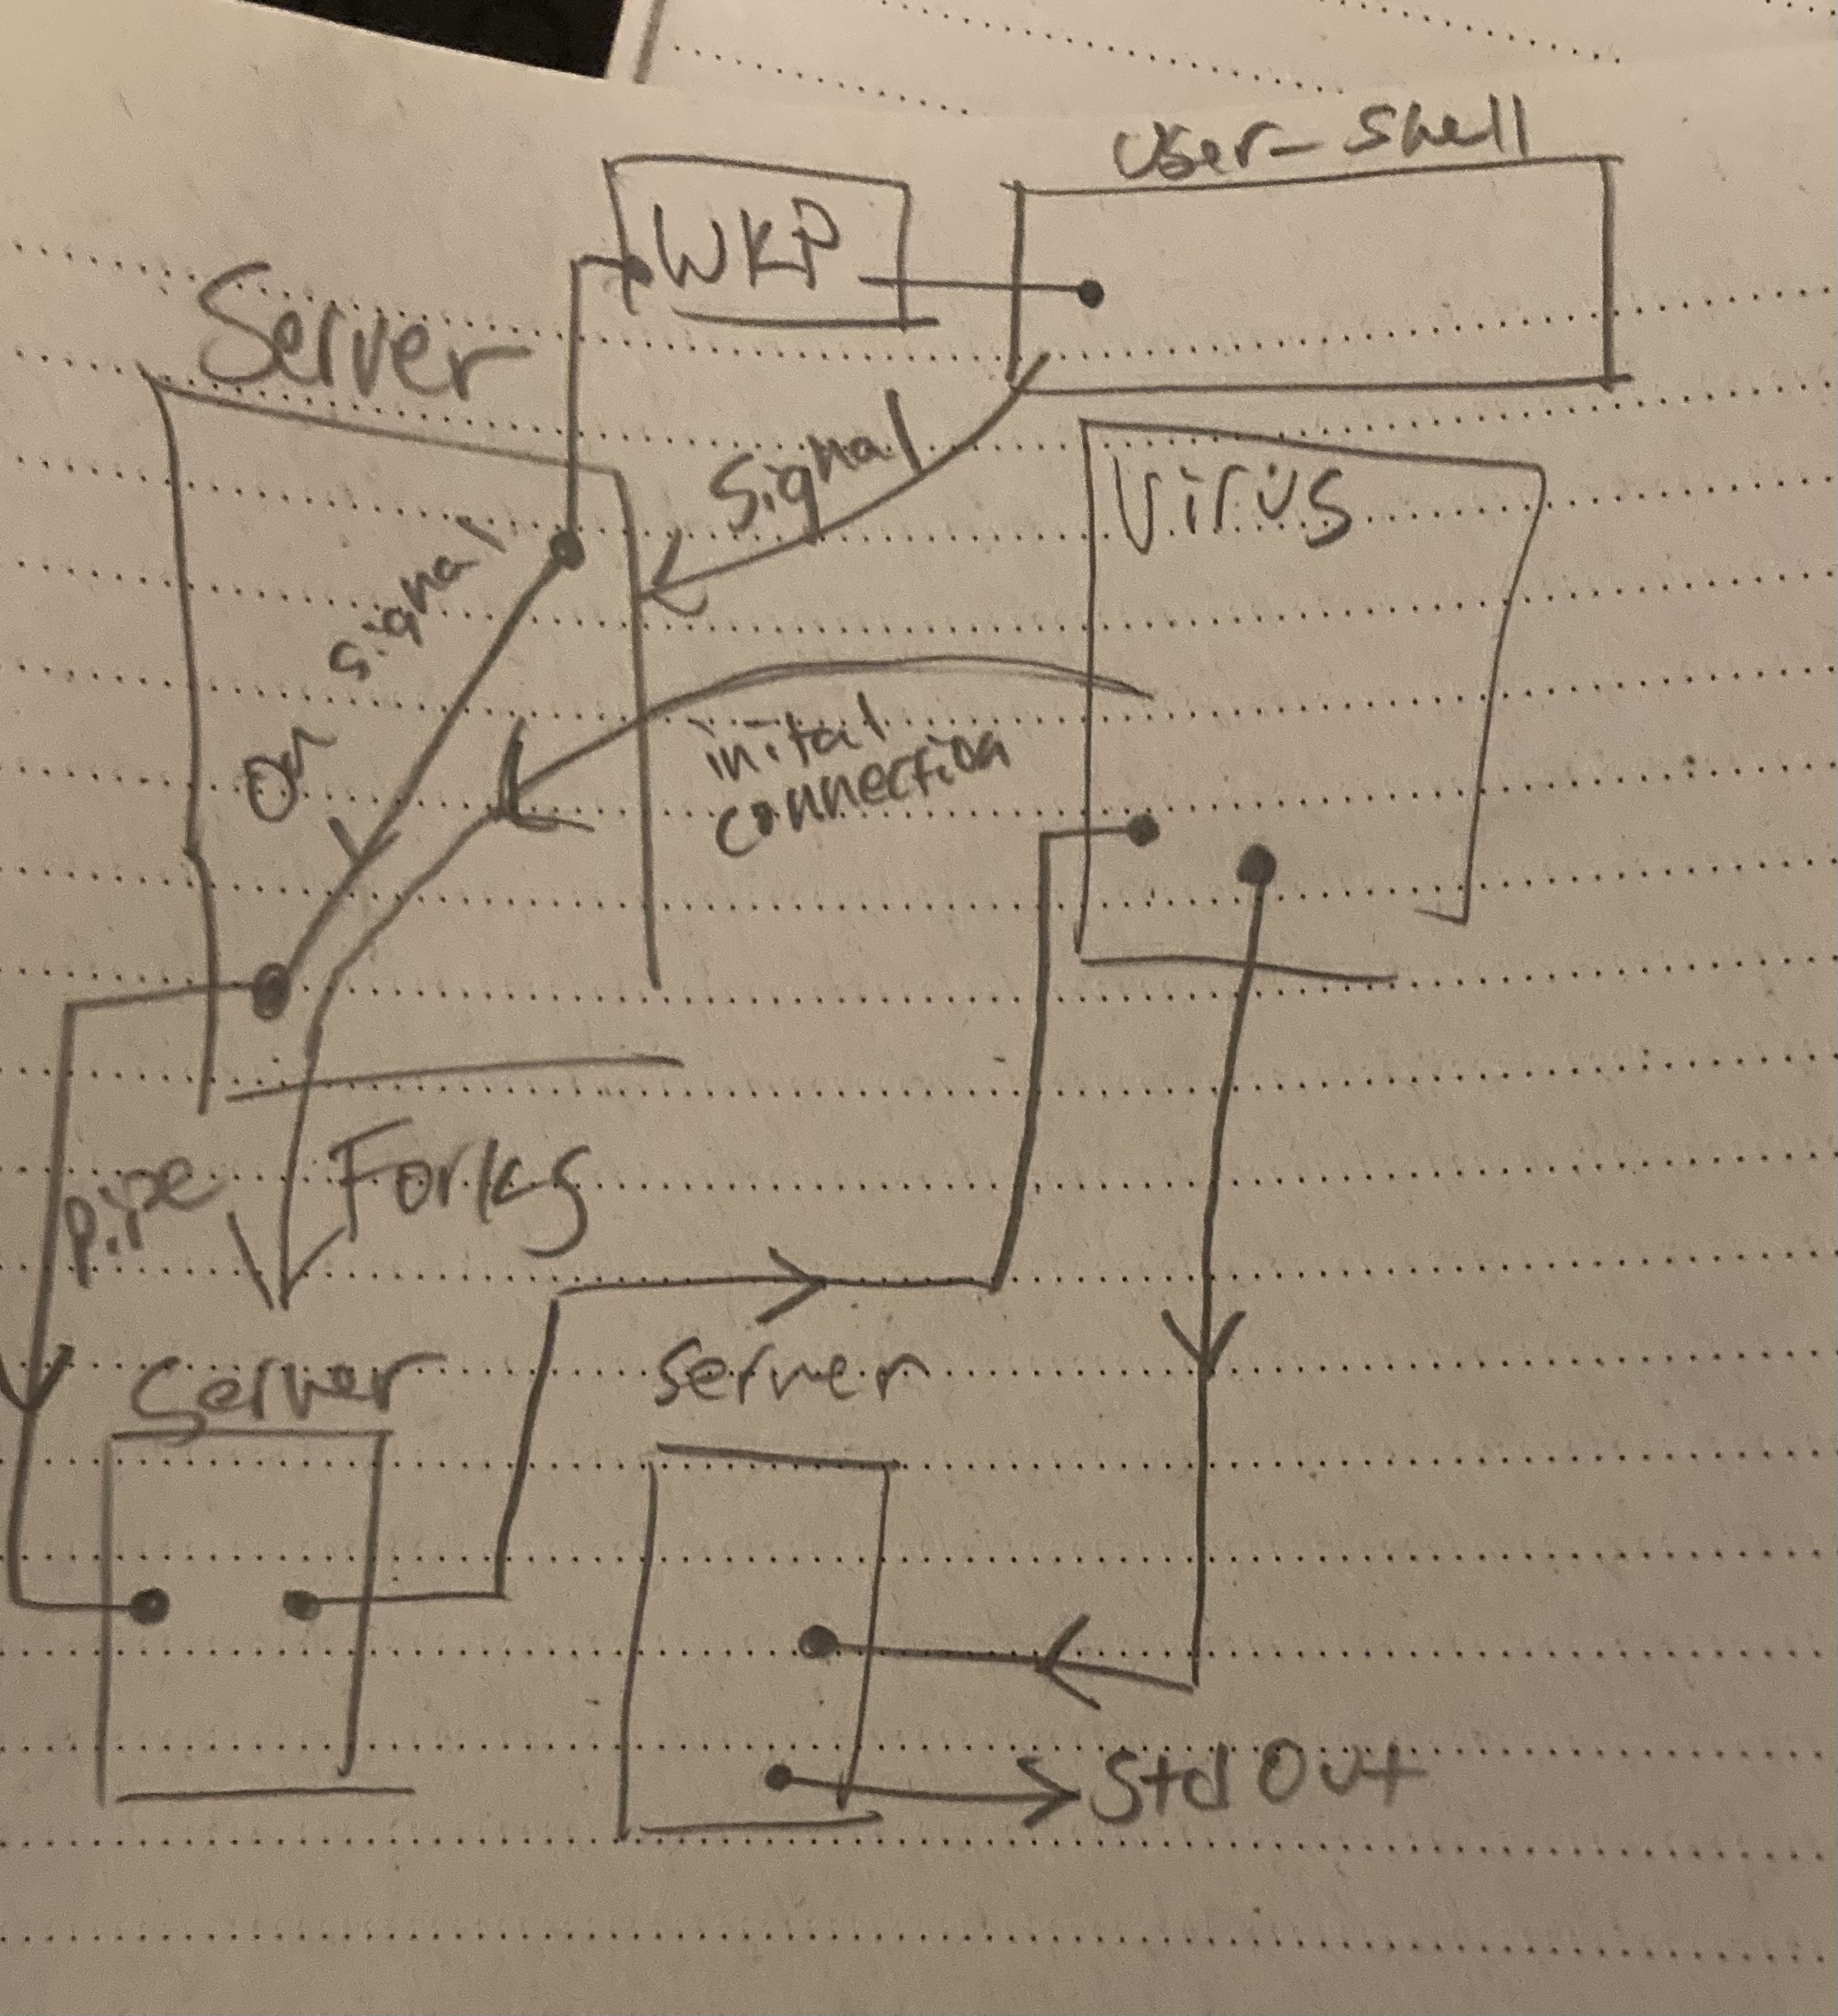 User-Shell
WKP
Server
Signal
Virus
On signal
inital
connection
pipe
Forks
Server
Server
Std Out